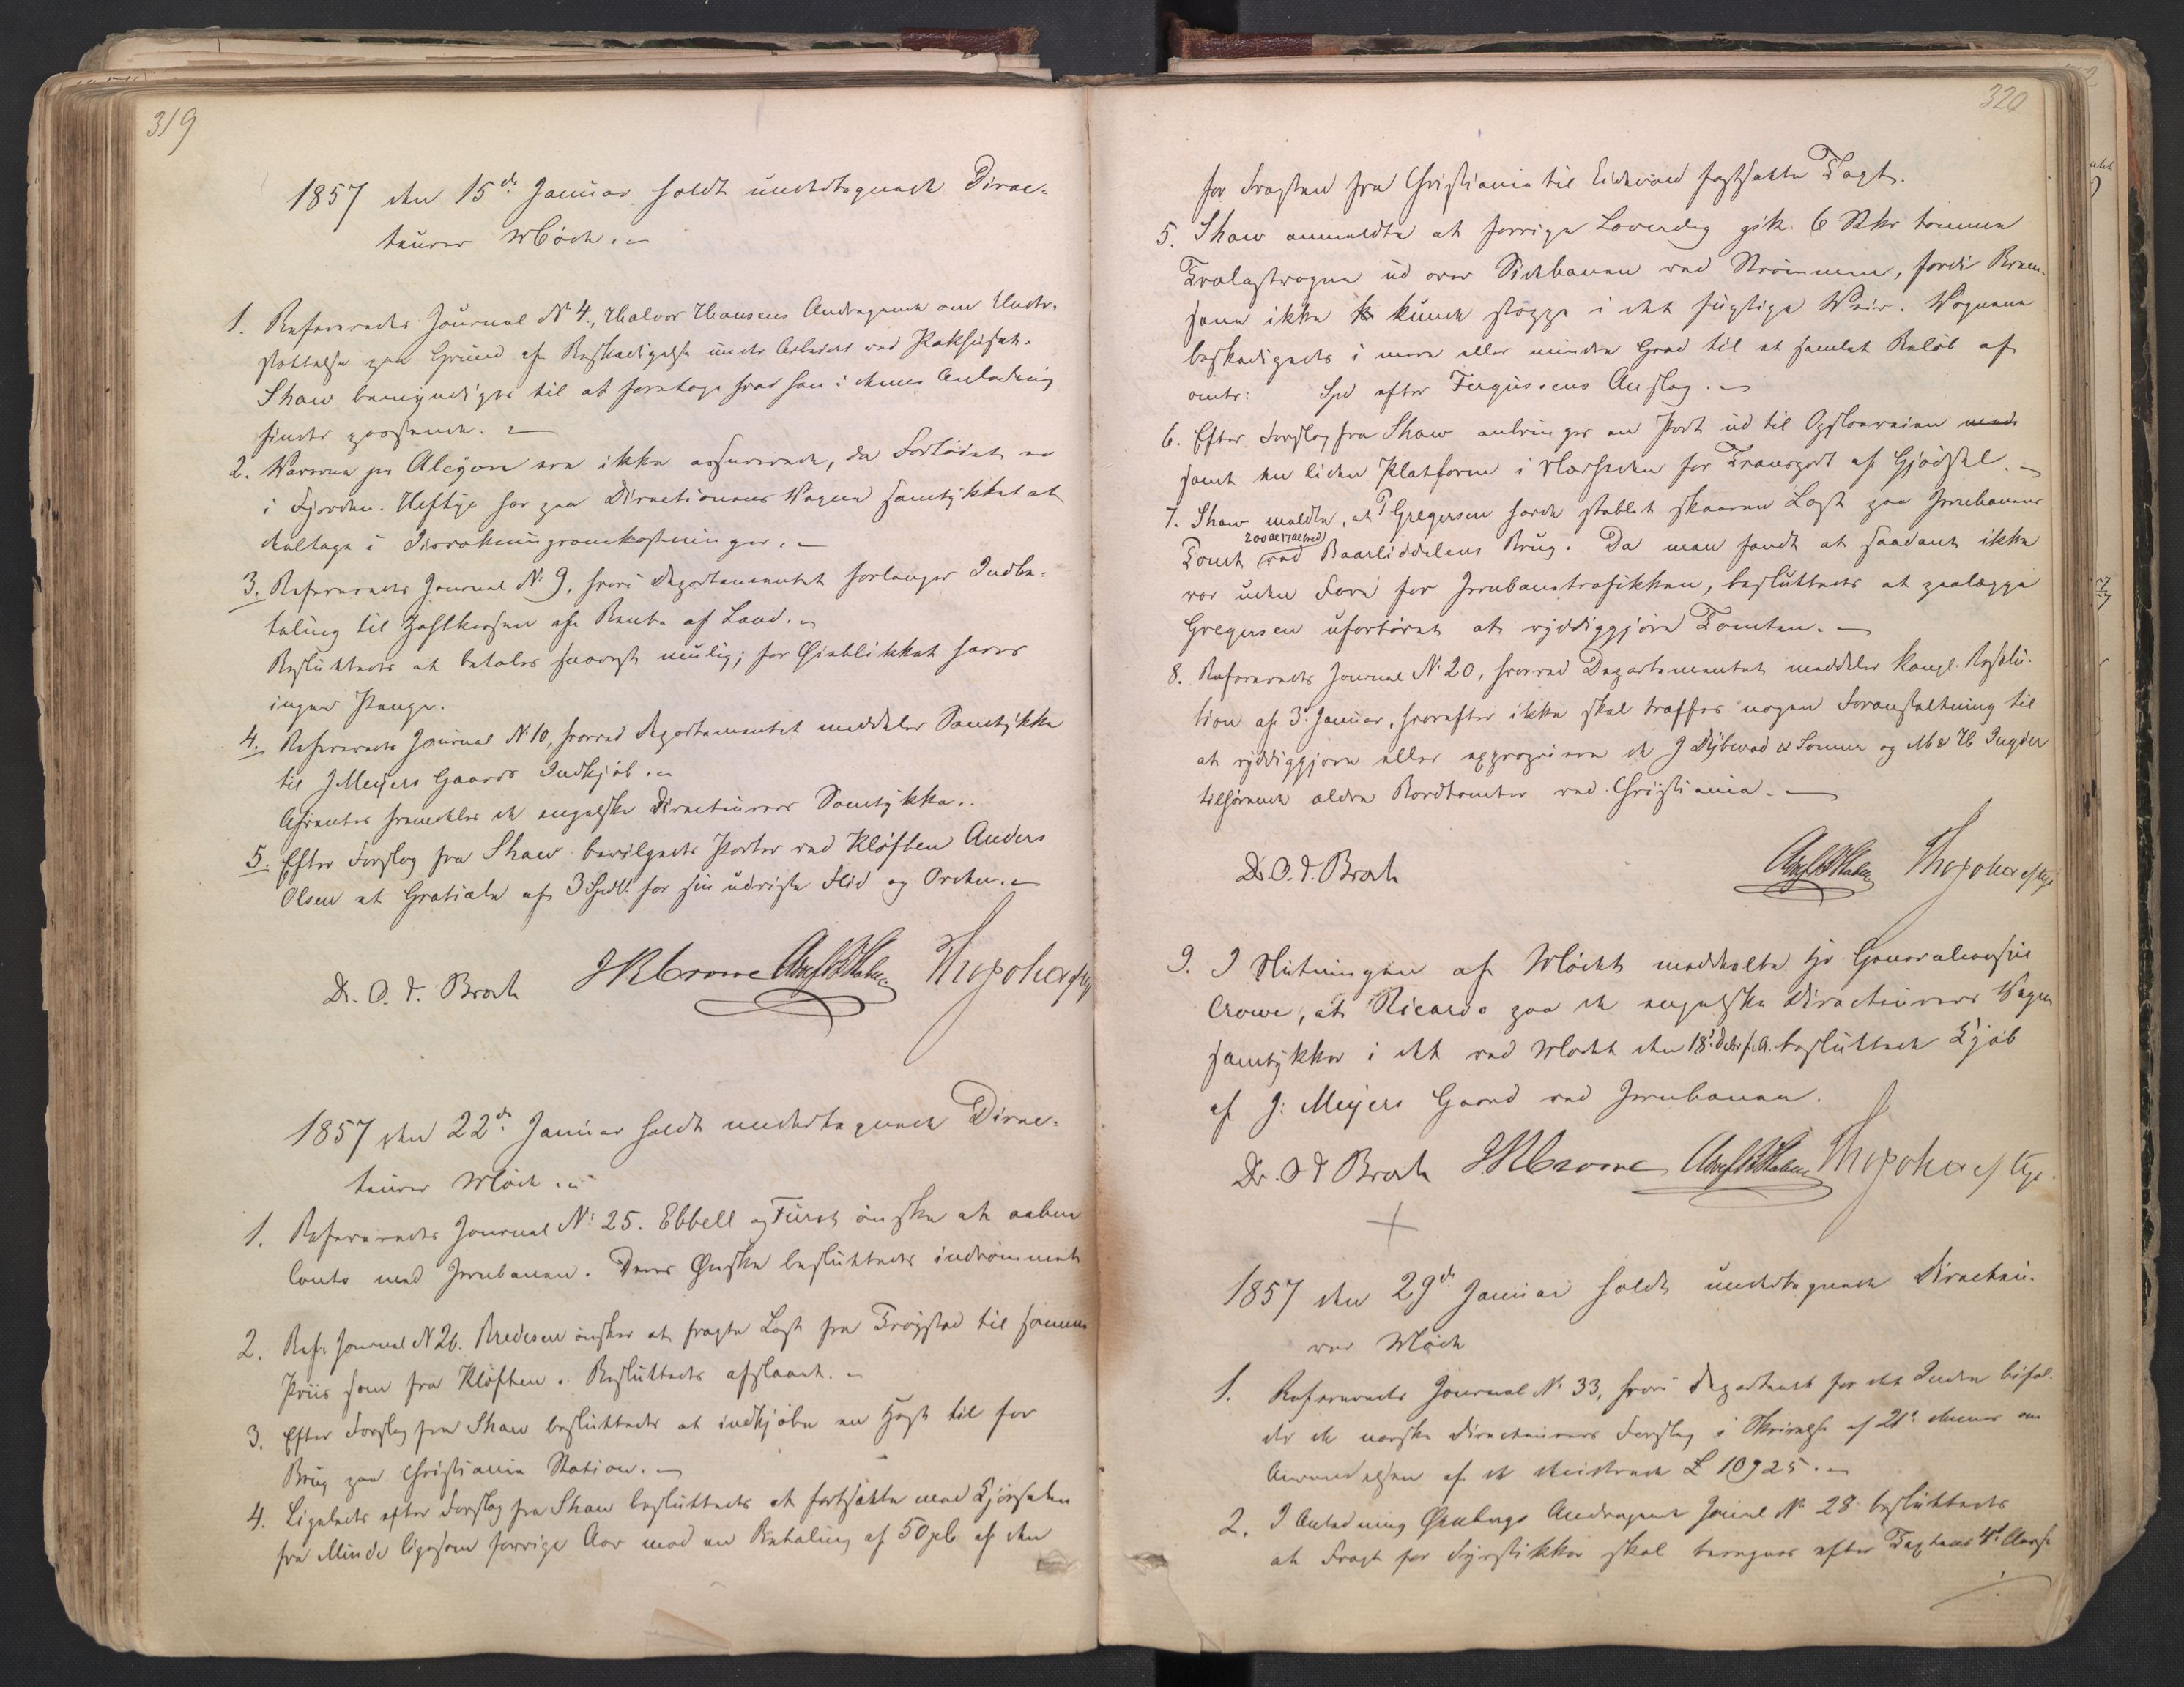 319
1857 den 15de Januar holdt undertegnede Direc-
teurer Möde.
1. Refereredes Journal No 4, Halvor Hansens Andragende om Under-
støttelse paa Grund af Beskadigelse under Arbeidet ved Pakhuset.
Shaw bemyndiges til at foretage hvad han i denne Anledning
finder passende.
2. Varerne pr Alcyon ere ikke assurerede, da Forliset er
i Fjorden. Heftye har paa Directionens Vegne samtykket at
deltage i Isræknings omkostninger.
3. Refereredes Journal No 9, hvori Departementet forlanger Indbe-
taling til Zahlkassen af Rente af Laan.
Besluttedes at betales snarest mulig; for Øieblikket haves
ingen Penge.
4. Refereredes Journal No 10, hvorved Departementet meddeler Samtykke
til J Meyers Gaards Indkjöb.
Afventes fremdeles de engelske Directeurers Samtykke.
5. Efter Forslag fra Shaw bevilgedes Porter ved Kløften Anders
Olsen et Gratiale af 3 Spdl. for sin udviste Flid og Orden.
Dr. O. J. Broch JRCrowe Thos Joh Heftye
1857 den 22de Januar holdt undertegnede Direc-
teurer Möde.
1. Refereredes Journal No: 25. Ebbell og Fürst önske at aabne
Conto med Jernbanen. Deres Ønske besluttedes indrömmet
2. Ref. Journal No 26. Bredesen önsker at fragte Last fra Trøgstad til samme
Priis som fra Kløften. Besluttedes afslaaet.
3. Efter Forslag fra Shaw besluttedes at indkjöbe en Hest til for
Brug paa Christiania Station.
4. Ligeledes efter Forslag fra Shaw besluttedes at fortsætte med Kjørselen
fra Minde ligesom forrige Aar mod en Betaling af 50 pCt af den
320
for Fragten fra Christiania til Eidsvold fastsatte Taxt.
5. Shaw anmeldte at forrige Loverdag gik 6 Stkr tomme
Trælastvogne ud over Sidebanen ved Strömmen, fordi Brem-
sene ikke k kunde stoppe i det fugtige Veir. Vognene
beskadigedes i mere eller mindre Grad til et samlet Belöb af
omtr: Spd efter Fergusons Anslag.
6. Efter Forslag fra Shaw anbringes en Port ud til Opsloveien med
samt en liden Platform i Nærheden for Transport af Gjödsel.
7. Shaw meldte, at T Gregersen havde stablet skaaren Last paa Jernbanens
200 Al 17 Al (bred)
Tomt ved Baarliddelens Brug. Da man fandt at saadant ikke
var uden Fare for Jernbanetrafikken, besluttedes at paalægge
Gregersen ufortövet at ryddiggjöre Tomten.
8. Refereredes Journal No 20, hvorved Departementet meddeler kongl. Resolu-
tion af 3d Januar, hvorefter ikke skal træffes nogen Foranstaltning til
at ryddiggjøre eller expropriere de J Dybwad & Sönner og M & H Ingier
tilhörende ældre Bordtomter ved Christiania.
Dr. O. J. Broch Thos Joh Heftye
9. I Slutningen af Mödet meddeelte Hr Generalconsul
Crowe, at Ricardo paa de engelske Directeurers Vegne
samtykker i det ved Mödet den 18d Debr f. A. besluttede Kjøb
af J: Meyers Gaard ved Jernbanen.
Dr. O J Broch JRCrowe Thos Joh Heftye
1857 den 29de Januar holdt undertegnede Directeu-
rer Möde
1. Refereredes Journal No 33, hvori Departemt for det Indre bifal-
der de norske Directeurers Forslag i Skrivelse af 21d dennes om
Anvendelsen af de deistrede £ 10925.
2. I Anledning Grubergs Andragende Journl No 28 besluttedes
at Fragt for Fyrstikker skal beregnes efter Taxtens 4d Classe